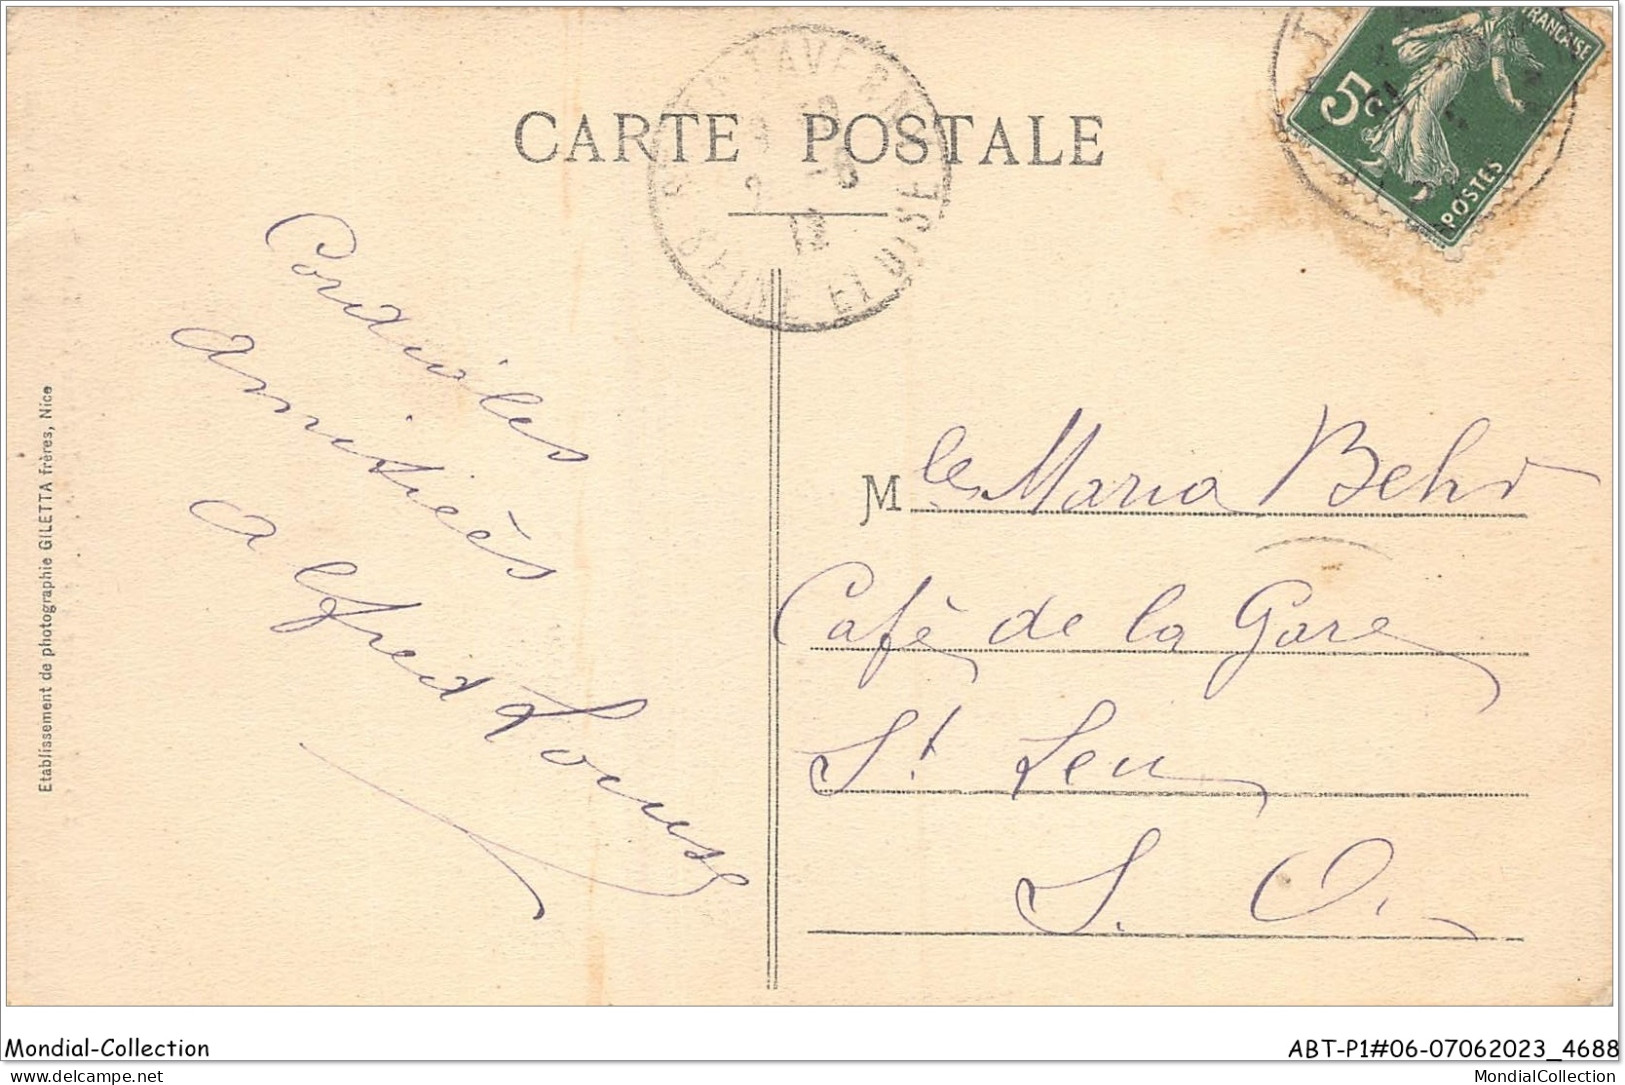 CARTE POSTALE
FRANÇAISE
5c
POSTES
TAVERNY
SEINE ET OISE
Cordiales
amitiés
Alfred Louise
Mlle Maria Behr
Café de la Gare
St. Leu
S. O.
Etablissement de photographie GILETTA frères, Nice
Mondial-Collection
ABT-P1#06-07062023_4688
delcampe.net
MondialCollection